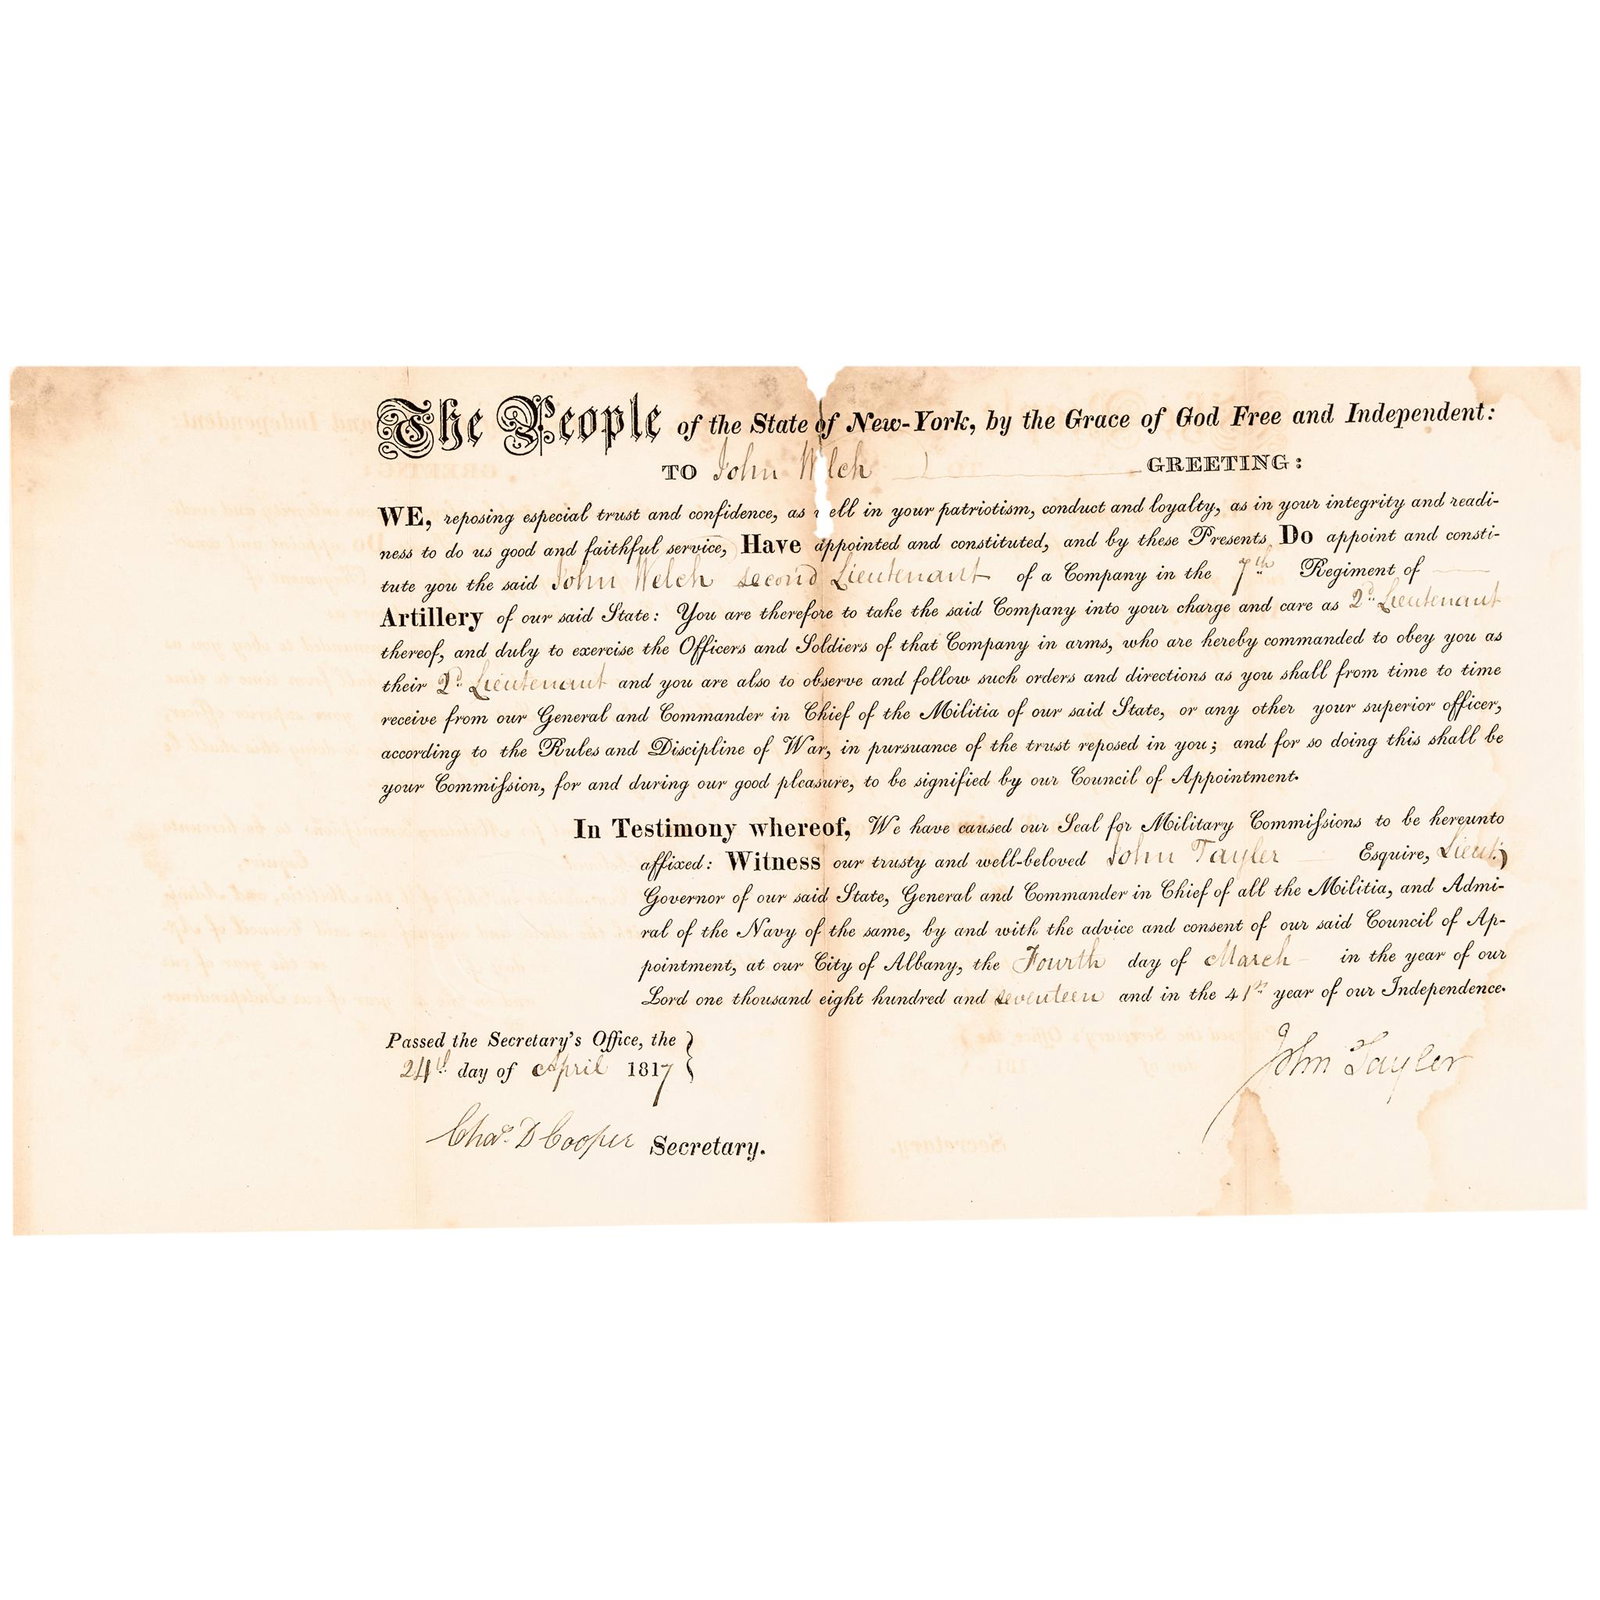 The People of the State of New-York, by the Grace of God Free and Independent:
TO John W lch GREETING:
WE, reposing especial trust and confidence, as ell in your patriotism, conduct and loyalty, as in your integrity and readi-
ness to do us good and faithful service, Have appointed and constituted, and by these Presents, Do appoint and consti-
tute you the said John Welch second Lieutenant of a Company in the 7th Regiment of
Artillery of our said State: You are therefore to take the said Company into your charge and care as 2d Lieutenant
thereof, and duly to exercise the Officers and Soldiers of that Company in arms, who are hereby commanded to obey you as
their 2d Lieutenant and you are also to observe and follow such orders and directions as you shall from time to time
receive from our General and Commander in Chief of the Militia of our said State, or any other your superior officer,
according to the Rules and Discipline of War, in pursuance of the trust reposed in you; and for so doing this shall be
your Commiſsion, for and during our good pleasure, to be signified by our Council of Appointment.
In Testimony whereof, We have caused our Seal for Military Commiſsions to be hereunto
affixed: Witness our trusty and well-beloved John Tayler Esquire, Lieut.
Governor of our said State, General and Commander in Chief of all the Militia, and Admi-
ral of the Navy of the same, by and with the advice and consent of our said Council of Ap-
pointment, at our City of Albany, the Fourth day of March in the year of our
Lord one thousand eight hundred and seventeen and in the 41st year of our Independence.
Passed the Secretary's Office, the
24th day of April 1817
John Tayler
Chas. D Cooper Secretary.